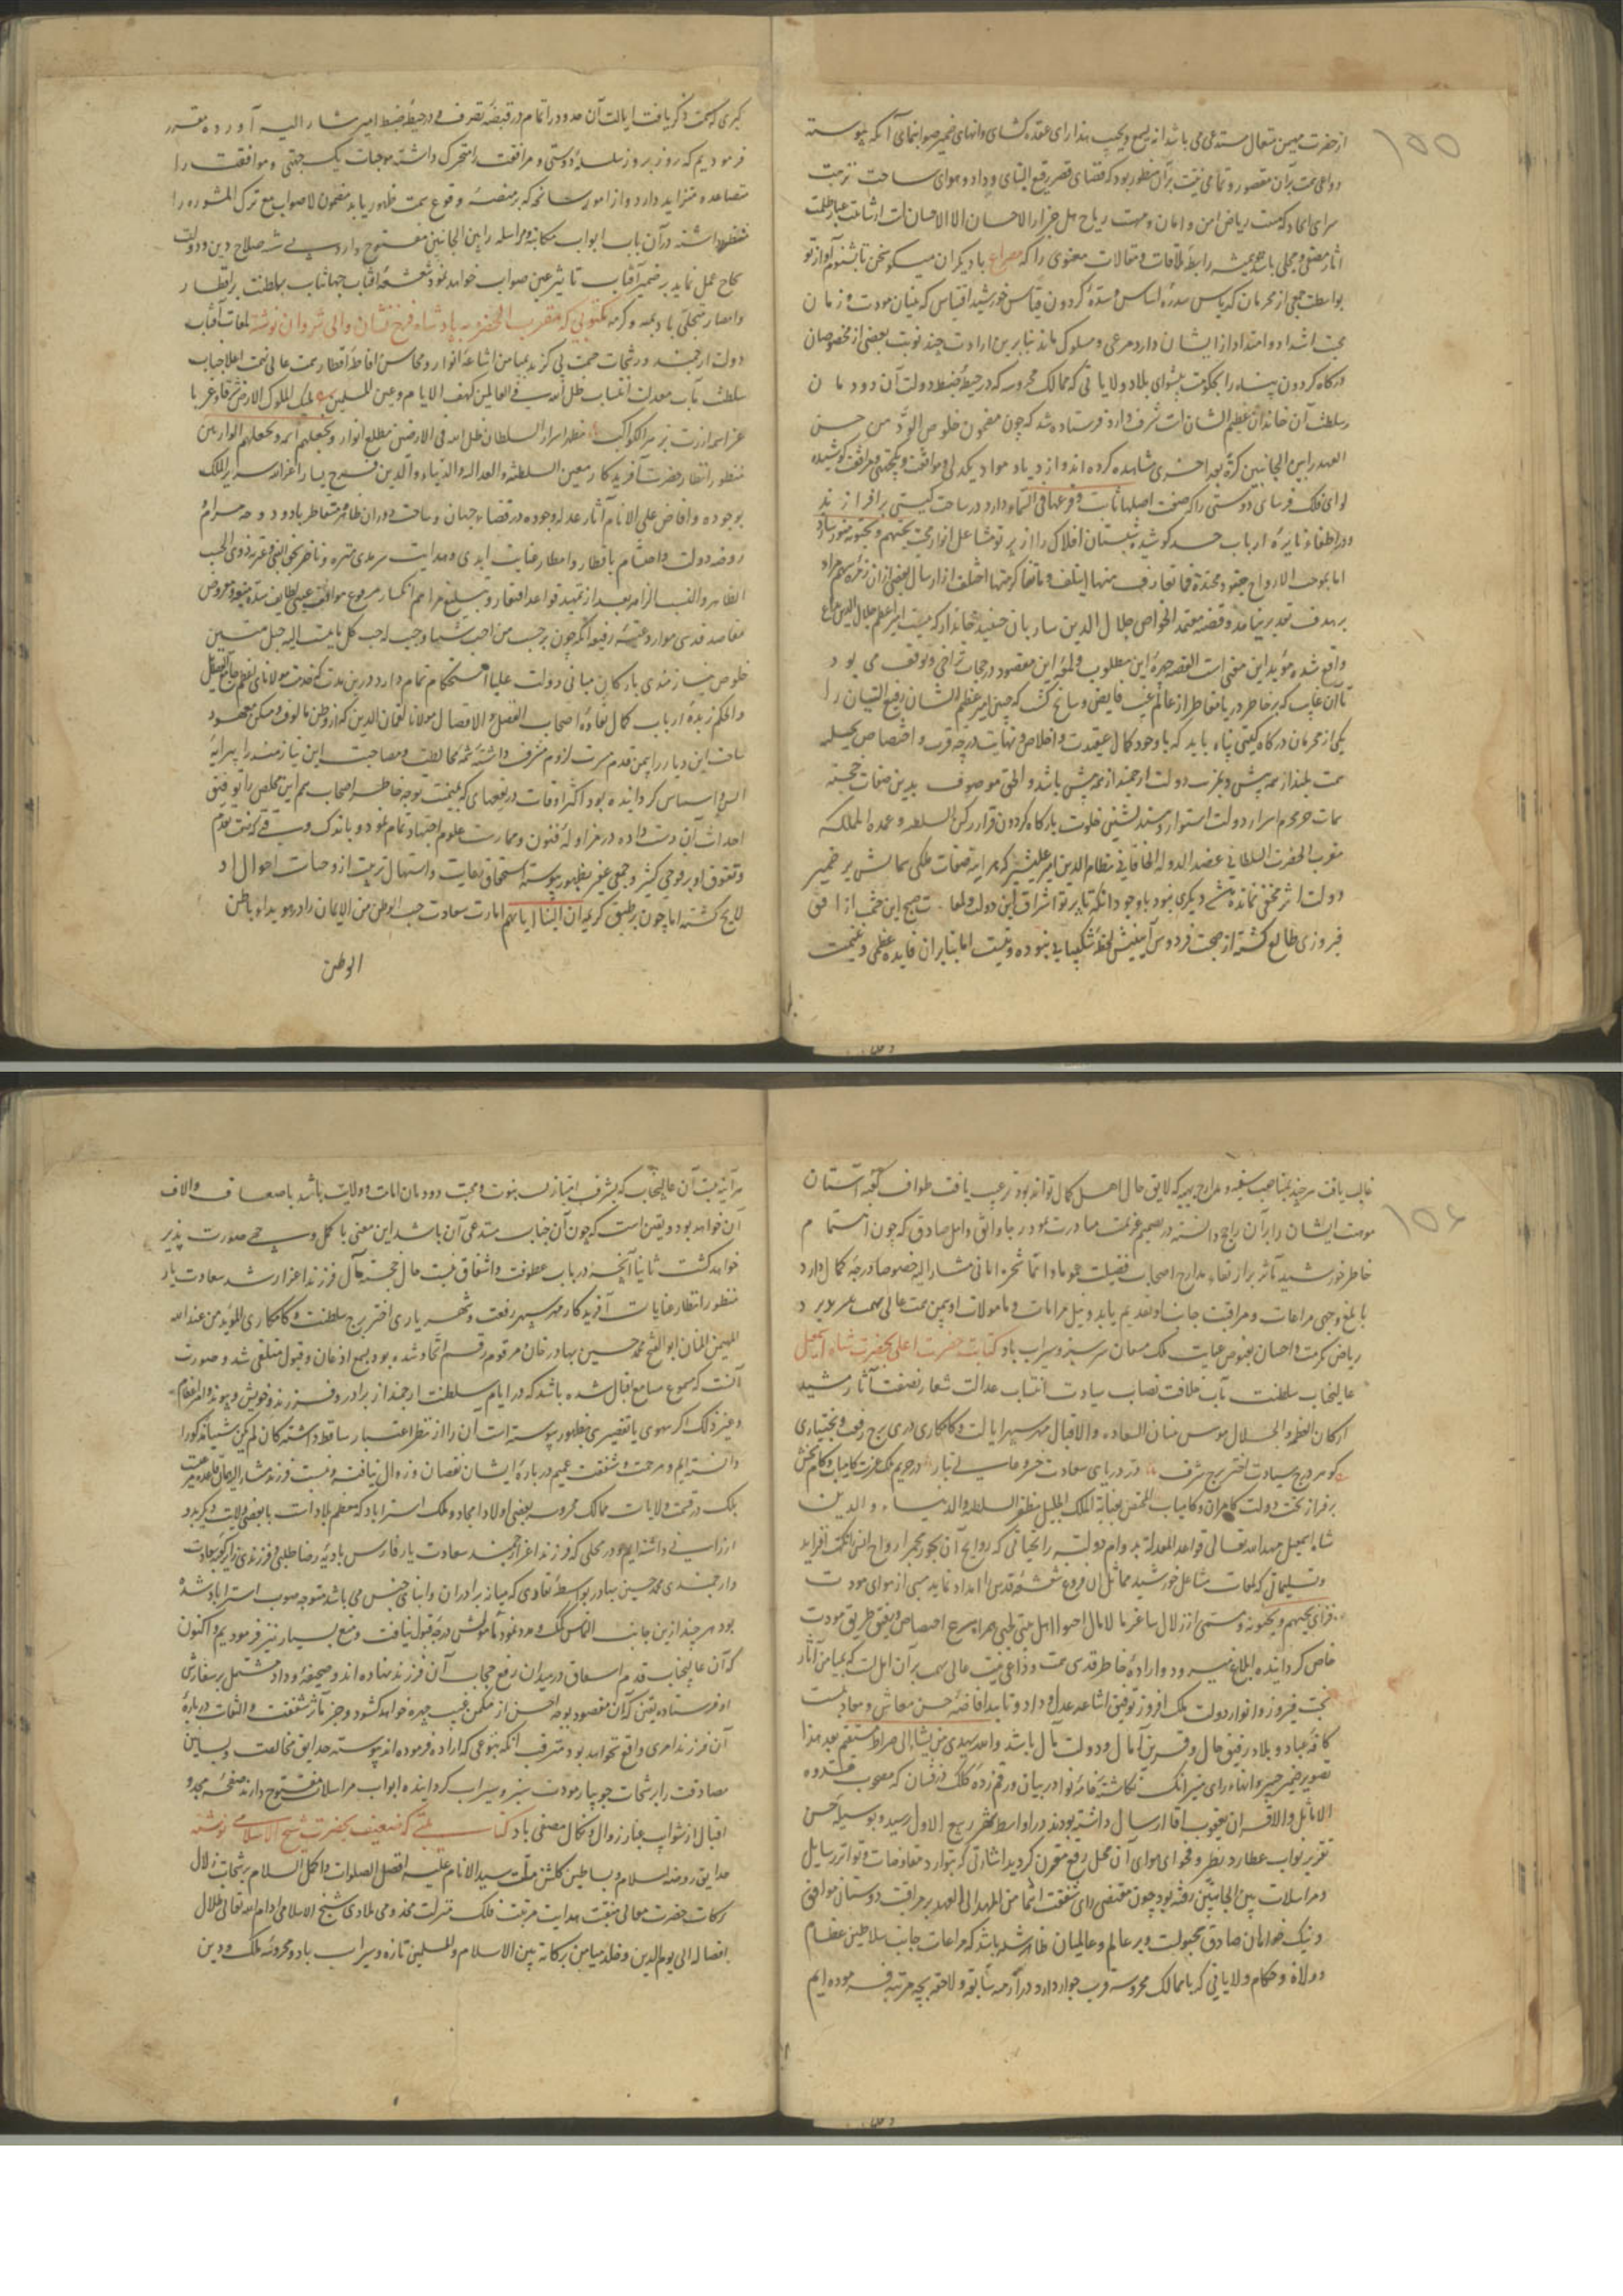 ۱۵۵
از حضرت مهیمن متعال مستدعی می باشد انه سمیع و مجیب بعد از رای عقده کشای و انهای ضمیر صوابنمای آنکه پیوسته
دواعی همت بران مقصور و تمامی نیت بران منظور بود که فضای قصر رفیع البنای وداد و هوای ساحت نزهت
سرای اتحاد که منبت ریاض امن و امان و مهب ریاح هل جزاء الاحسان الا الاحسان است از شائبت غبار ظلمت
اثار مصفی و مجلی باشد همیشه رابطه ملاقات و مقالات معنوی را که مصراع با دیکران میکو سخن تا بشنوم آواز تو
بواسطت جمعی از محرمان که پاس سدره اساس و سده کردون قیاس خورشید اقتباس که بنیان مودت و زمان
محبت اشتداد و امتداد از ایشان دارد مرعی و مسلوک ماند بنابرین ارادت چند نوبت بعضی از مخصوصان
درکاه کردون پناه را بحکومت پیشوای بلاد و ولایاتی که ممالک محروسه که در حیطه ضبط دولت آن دودمان
سلطنت آن خاندان عظیم الشان است شرف و ارد فرستاده شد که چون مضمون خلوص الود من حسن
العهد را بین الجانبین کرة بعد اخری مشاهده کرده اند و ازدیاد مواد یکدلی و موافقت و یکجهتی و مرافقت کوشیده
لوای فلک فرسای دوستی را که صفت اصلها ثابت و فرعها فی السماء دارد در ساحت کیتی برافرازند
و در اطفاء نایره ارباب حسد کوشیده شبستان افلاک را از پرتو مشاعل انوار محبت یحبهم و یحبونه منور سازند
اما بموجب الارواح جنود مجندة فما تعارف منها ایتلف و ما تناکر منها اختلف از ارسال بعضی ازان زمره سهم مراد
بر هدف تقدیر نیامد و قضیه معتمد الخواص جلال الدین ساربان
واقع شده مؤید این معنی است القصه چهره این مطلوب و لمعه این مقصود در حجاب تراخی و توقف می بود
تا آن غایت که بر خاطر دریا مقاطر از عالم غیب فایض و سانح کشت که چنین امیر عظیم الشان رفیع التبیان را
یکی از محرمان درکاه کیتی پناه باید که با وجود کمال عقیدت و اخلاص و نهایت درجه قرب و اختصاص بحیله
همت بلند از همه پیش و بعزت دولت ارجمند از همه بیش باشد و الحق موصوف بدین صفات خجسته
سمات جز محرم اسرار دولت استوار و مسند نشین خلوت بارکاه کردون قرار رکن السلطنه و عمده المملکه
مقرب الحضرت السلطانی عضد الدوله الخاقانی نظام الدین امیر علیشیر که مراتب صفات ملکی سمایش بر ضمیر
دولت اثر مخفی نمانده شخصی دیکری نبود با وجود آنکه تا پرتو اشراق این دولت و لمعات صبح این حشمت از افق
فیروزی طالع کشته از صحبت فردوس آیینش لحظه شکیبایی نبوده و نیست اما بنابران فایده عظمی و غنیمت
کبری که سمت ذکر یافت ایالت آن حدود را تمام در قبضه تصرف و در حیطه ضبط امیر مشار الیه آورده مقرر
فرمودیم که روز بروز سلسله دوستی و مرافقت را متحرک داشته موجبات یک جهتی و موافقت را
متصاعد و متزاید دارد و از امور سانحه که بر منصه وقوع سمت ظهور یابد مضمون لا صواب مع ترک المشوره را
منظور داشته در آن باب ابواب مکاتبه و مراسله را بین الجانبین مفتوح دارد و بی شبه صلاح دین و دولت
نجاح عمل نماید بر ضمیر آفتاب تاثیر عین صواب خواهد نمود شعشعه آفتاب جهانتاب سلطنت بر اقطار
و امصار متجلی باد بمنه و کرمه مکتوبی که مقرب الحضره به پادشاه فرخ نشان والی شروان نوشته لمعات آفتاب
دولت ارجمند و رشحات حمیت پی کزند بمیامن اشاعه انوار و محاسن افاضه اقطار همت عالی نهمت اعلا جناب
سلطنت مآب معدلت انتساب ظل الله فی العالمین کهف الایام و عین المسلمین ملک الملوک الارض شرقا و غربا
عز اسمه ازرت بزهر الکواکب مظهر اسرار السلطان ظل الله فی الارض مطلع انوار و نجعلهم ائمه و نجعلهم الوارثین
منظور انظار حضرت آفریدکار معین السلطنه و العداله و الدنیا و الدین فرخ یسار اعز الله سریر الملک
بوجوده و افاض علی الانام آثار عدله وجوده در فضاء جهان و ساحت دوران ظاهر متعاطر باد و دوحه مرام
روضه دولت و احتشام باقطار و امطار عنایت ابدی و هدایت سرمدی متنزه و ناضر بحق النبی و عترته ذوی الحسب
الظاهر و النسب الزاهر بعد از تمهید قواعد افتقار و تبلیغ مراسم انکسار مرفوع مواقف علیه و معروض
مقاصد قدسی موارد عتبه رفیعه آنکه چون بر حسب من احب شیئا وجب له حب کل ما ینسب الیه حبل متین
خلوص نیازمندی بارکان مبانی دولت علیا استحکام تمام دارد درین مدت که خدمت مولانای اعظم
و الحکم زبده ارباب کمال نقاوه اصحاب الفضل و الافضال مولانا نعمان الدین که از وطن مالوف و مسکن معهود
ساحت این دیار را بیمن قدم مسرت لزوم مشرف داشته بمخالطت و مصاحبت این نیازمند را پیرایه
انس و استیناس کردانیده بود اکثر اوقات در بقعهای که بیمن همت توجه خاطر اصحاب بهم این مخلص را توفیق
احداث آن دست داده در مزاوله فنون و ممارست علوم اجتهاد تمام نمود و باندک وقتی که نسبت تقدم
و تفوق او بر فوجی کثیر و جمعی غفیر بظهور پیوسته استحقاق رعایت و استیهال تربیت از وجنات احوال او
لایح کشته اما چون بر طبق کریمه ان الینا ایابهم امارت سعادت حب الوطن من الایمان را در سویداء باطن
الوطن
۱۵۶
غالب یافت هرچند بمناصب سنیه و مدارج بهیه که لایق حال اهل کمال تواند بود ترغیب یافت طواف کعبه آستان
موهبت ایشان را بران راجح دانسته در تصمیم عزیمت مبادرت نمود رجا واثق و امل صادق که چون اهتمام
خاطر خورشید تاثر بر ارتقاء مدارج اصحاب فضیلت عموما و انما شجره امانی مشار الیه خصوصا درجه کمال دارد
بابلغ وجهی مراعات و مراقبت جانب او تقدیم یابد و نیل مرامات و مامولات او بیمن همت عالی سمت
ریاض مکرمت و احسان بفیوض عنایت ملک مستعان سرسبز و سیراب باد کتابت حضرت اعلی بحضرت شاه اسمعیل
عالیجناب سلطنت مآب خلافت نصاب سیادت انتساب عدالت شعار نصفت آثار مشید
ارکان العظمه و الجلال موسس بنیان السعاده و الاقبال مهر سپهر ایالت و کامکاری دری برج رفعت و بختیاری
کوهر درج سیادت اختر برج شرف در دریای سعادت خسرو عالی تبار در حریم ملک عزت کامیاب و کام بخش
بر فراز تخت دولت کامران و کامیاب المختص بعنایه الملک الجلیل مظفر السلطنه و الدنیا و الدین
شاه اسمعیل مهد الله تعالی قواعد المعدلة بدوام دولته را تحیاتی که روایح آن بخور مجمر ارواح انس را نکهت افزاید
و تسلیماتی که لمعات مشاعل خورشید مماثل آن فروغ شعشعه قدس را امداد نماید مبنی از هوای مودت
فزای یحبهم و یحبونه و مسقی از زلال ساغر مالامال
خاص کردانیده ابلاغ میرود و اراده خاطر قدسی همت و دواعی نیت عالی سمت بر آن است که بمیامن آثار
بخت فیروز و انوار دولت ملک افروز توفیق اشاعه عدل و داد و تایید افاضه حسن معاش و معاد نسبت
کافه عباد و بلاد رفیق حال و قرین آمال و دولت مآل باشد و الله یهدی من یشاء الی صراط مستقیم بعد هذا
تصویر ضمیر منیر و انهاء رای منیر آنک نکاشته خامه نوادر بیان و رقم زده کلک درفشان که مصحوب قدوه
الاماثل و الاقران یعقوب آقا ارسال داشته بودند در اواسط شهر ربیع الاول رسید و بوسیله حسن
تقریر نواب عطارد نظر و فحوای هوای آن بمحل رفع مقرون کردید اشارتی که بتوارد مفاوضات و تواتر رسایل
و مراسلات بین الجانبین رفته بود چون مقتضی رای شفقت انما من المهد الی العهد بر مراقبت دوستان موافق
و نیک خواهان صادق مجبولست و بر عالم و عالمیان ظاهر شده باشد که مراعات جانب سلاطین عظام
و ولاة و حکام ولایاتی که بممالک محروسه قرب جوار دارد در ازمنه سابقه و لاحقه بچه مرتبه فرموده ایم
هر آینه نسبت آن عالیجناب که بشرف امتیاز نسب نبوت و محبت دودمان امامت و ولایت باشد باضعاف و الاف
آن خواهد بود و یقین است که چون آن جناب مستدعی آن باشد این معنی باکمل وجهی صورت پذیر
خواهد کشت ثانیا آنچه در باب عطوفت و اشفاق نسبت حال خجسته مآل فرزند اعز ارشد سعادت یار
منظور انظار عنایات آفریدکار مهر سپهر رفعت و شهریاری اختر برج سلطنت و کامکاری المؤید من عند الله
المهیمن المنان ابو الفتح محمد حسین بهادر خان مرقوم رقم اتحاد شده بود بسمع اذعان و قبول متلقی شد و صورت
آنست که مسموع سامع اقبال شده باشد که در ایام سلطنت ارجمند از برادر و فرزند و خویش و پیوند و امراء عظام
و غیر ذلک اکر سهوی یا تقصیری بظهور پیوسته است آن را از نظر اعتبار ساقط داشته کان لم یکن شیئا مذکورا
دانسته ایم و مرحمت و شفقت عمیم در باره ایشان نقصان و زوال نیافته و نسبت فرزند مشار الیه همان
بلک در قسمت ولایات ممالک محروسه ببعضی اولاد امجاد و ملک استراباد که معظم بلاد است با بعضی ولایت دیکر بدو
ارزانی داشته ایم و در محلی که فرزند اعز ارجمند سعادت یار فارس بادیه رضا طلبی و فرزندی
و ارجمندی محمد حسین بهادر بواسطه نقاری که میانه برادران و ابناء جنس می باشد متوجه صوب استراباد شده
بود هرچند ازین جانب التماس کمک و مدد نمود مامولش درجه قبول نیافت و منع بسیار نیز فرمودیم و اکنون
که آن عالیجناب قدم اسعاف در میدان رفع حجاب آن فرزند نهاده اند و صحیفه وداد مشتمل بر سفارش
او فرستاده یقین که آن مقصود بوجه احسن از مکمن غیب چهره خواهد کشود و جز مآثر شفقت و التفات در باره
آن فرزند امری واقع نخواهد بود مترقب آنکه بنوعی که اراده فرموده اند پیوسته حدایق مخالصت و بساتین
مصادقت را برشحات جویبار مودت سبز و سیراب کردانیده ابواب مراسلات مفتوح دارند صفحه مجد و
اقبال از شوایب غبار زوال و نکال مصفی باد کتابتی که ضعیف بحضرت شیخ الاسلامی نوشته
حدایق روضه اسلام و بساطین کلشن ملت سید الانام علیه افضل الصلوات و اکمل السلام برشحات زلال
رکات حضرت معالی منقبت هدایت مرتبت فلک منزلت مخدومی ملاذی شیخ الاسلامی ادام الله تعالی ظلال
افضاله الی یوم الدین و خلد میامن برکاته بین الاسلام و المسلمین تازه و سیراب باد و محروسه ملک و دین